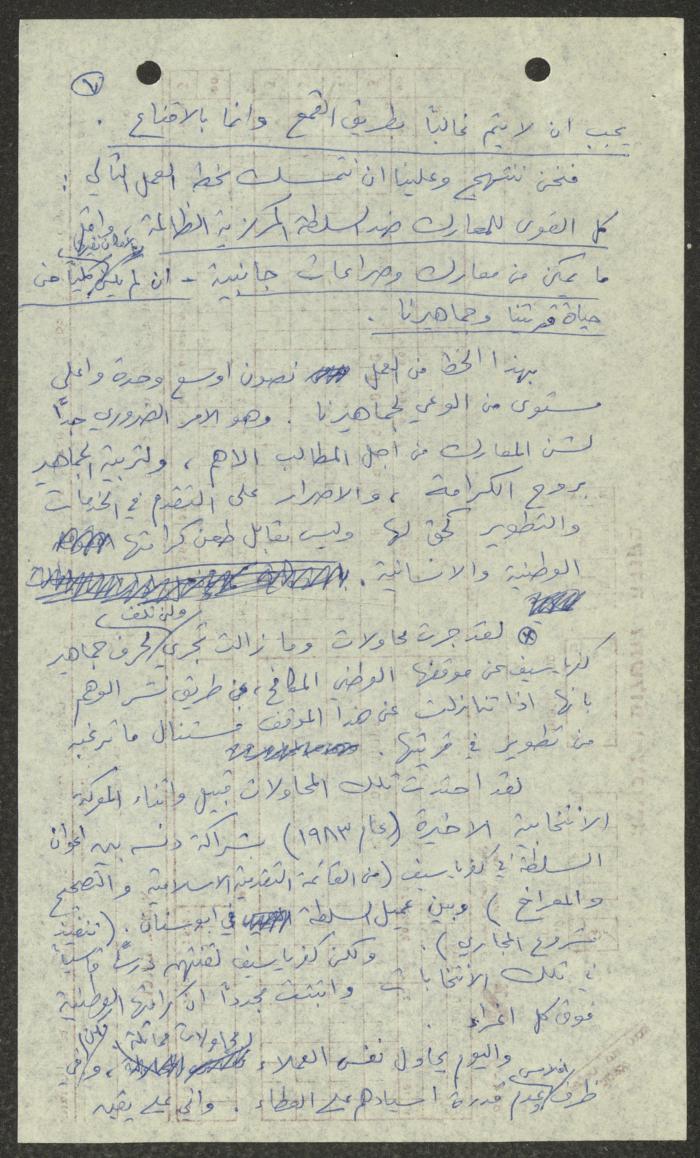 ٧
يجب ان لا يتم غالباً بطريق القمع وانما بالاقناع .
فنحن ننتهج وعلينا ان نتمسك بخط العمل التالي :
كل القوى للمعارك ضد السلطة المركزية الظالمة، واقل
ما يمكن من معارك وصراعات جانبية - ان لم يكن كلياً من
حياة قريتنا وجماهيرنا .
بهذا الخط من العمل نصون اوسع وحدة واعلى
مستوى من الوعي لجماهيرنا . وهو الامر الضروري جداً
لشن المعارك من أجل المطالب الاهم ، ولتربية الجماهير
بروح الكرامة ، والاصرار على التقدم في الخدمات
والتطوير كحق لها وليس مقابل طعن كرامتها
الوطنية والانسانية .
ولن تكف
لقد جرت محاولات وما زالت تجري لحرف جماهير
كفرياسيف عن موقفها الوطني المكافح، عن طريق نشر الوهم
بانها اذا تنازلت عن هذا الموقف فستنال ما ترغبه
من تطوير في قريتها .
لقد احتدت تلك المحاولات قبيل واثناء المعركة
الانتخابية الاخيرة (عام ١٩٨٣) بشراكة دنسة بين اعوان
السلطة في كفرياسيف (من القائمة التقدمية الاسلامية والتصحيح
والمعراخ) وبين عميل السلطة في ابوسنان . (تنفيذ
مشروع المجاري) . ولكن كفرياسيف لقنتهم درساً قاسياً
في تلك الانتخابات واثبتت مجدداً ان كرامتها الوطنية
فوق كل اغراء .
لمحاولات مماثلة
واليوم يحاول نفس العملاء ، وفي
افلاس
ظرف وعدم قدرة اسيادهم على العطاء . واني على يقين